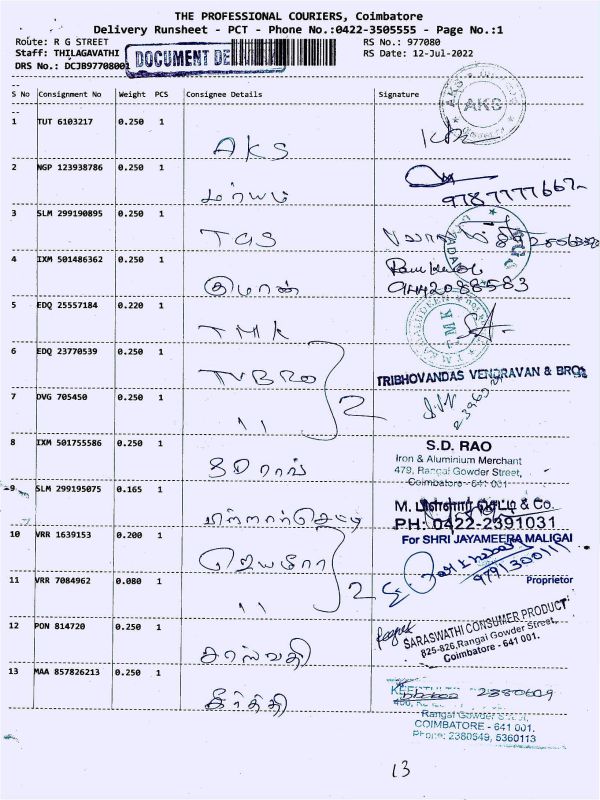 THE PROFESSIONAL COURIERS, Coimbatore
Delivery Runsheet - PCT - Phone No.:0422-3505555 - Page No.:1
Route: R G STREET RS No.: 977080
Staff: THILAGAVATHI RS Date: 12-Jul-2022
DRS No.: DCJB97708001 DOCUMENT
S No Consignment No Weight PCS Consignee Details Signature
AKS
1 TUT 6103217 0.250 1 AKS
2 NGP 123938786 0.250 1
3 SLM 299190895 0.250 1 TGS
4 IXM 501486362 0.250 1 குமரன் 9442088583
5 EDQ 25557184 0.220 1 TMK
TMK
6 EDQ 23770539 0.250 1 TVBRO 2
TRIBHOVANDAS VENDRAVAN & BROS
7 DVG 705450 0.250 1 11
8 IXM 501755586 0.250 1 SD ராவ்
S.D. RAO
Iron & Aluminium Merchant
479, Rangai Gowder Street,
Coimbatore - 641 001
9 SLM 299195075 0.165 1
M. செட்டி & Co.
PH: 0422-2391031
10 VRR 1639153 0.200 1 ஜெயமீரா 2
For SHRI JAYAMEERA MALIGAI
11 VRR 7084962 0.080 1 11
Proprietor
12 PON 814720 0.250 1 சரஸ்வதி
SARASWATHI CONSUMER PRODUCT
825-826, Rangai Gowder Street,
Coimbatore - 641 001.
13 MAA 857826213 0.250 1 கீர்த்தி
2380649
Rangai Gowder
COIMBATORE - 641 001.
Phone: 2380649, 5360113
13